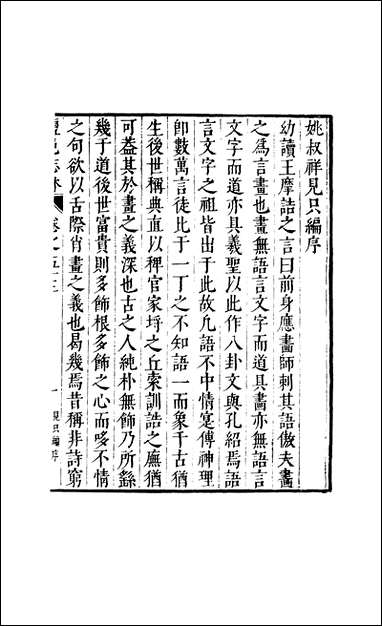 姚叔祥見只編序
幼讀王摩詰之言曰前身應畫師刺其語倣夫畫
之爲言畫也畫無語言文字而道具畫亦無語言
文字而道亦具義聖以此作八卦文與孔紹焉語
言文字之祖皆出于此故凢語不中情寔傳神理
卽數萬言徒比于一丁之不知語一而象千古猶
生後世稱典直以稗官家埒之丘索訓誥之廡猶
可葢其於畫之義深也古之人純朴無飾乃所繇
幾于道後世富貴則多飾根多飾之心而哆不情
之句欲以舌際肖畫之義也曷幾焉昔稱非詩窮
鹽邑志林
卷之五十三
見只編序
一